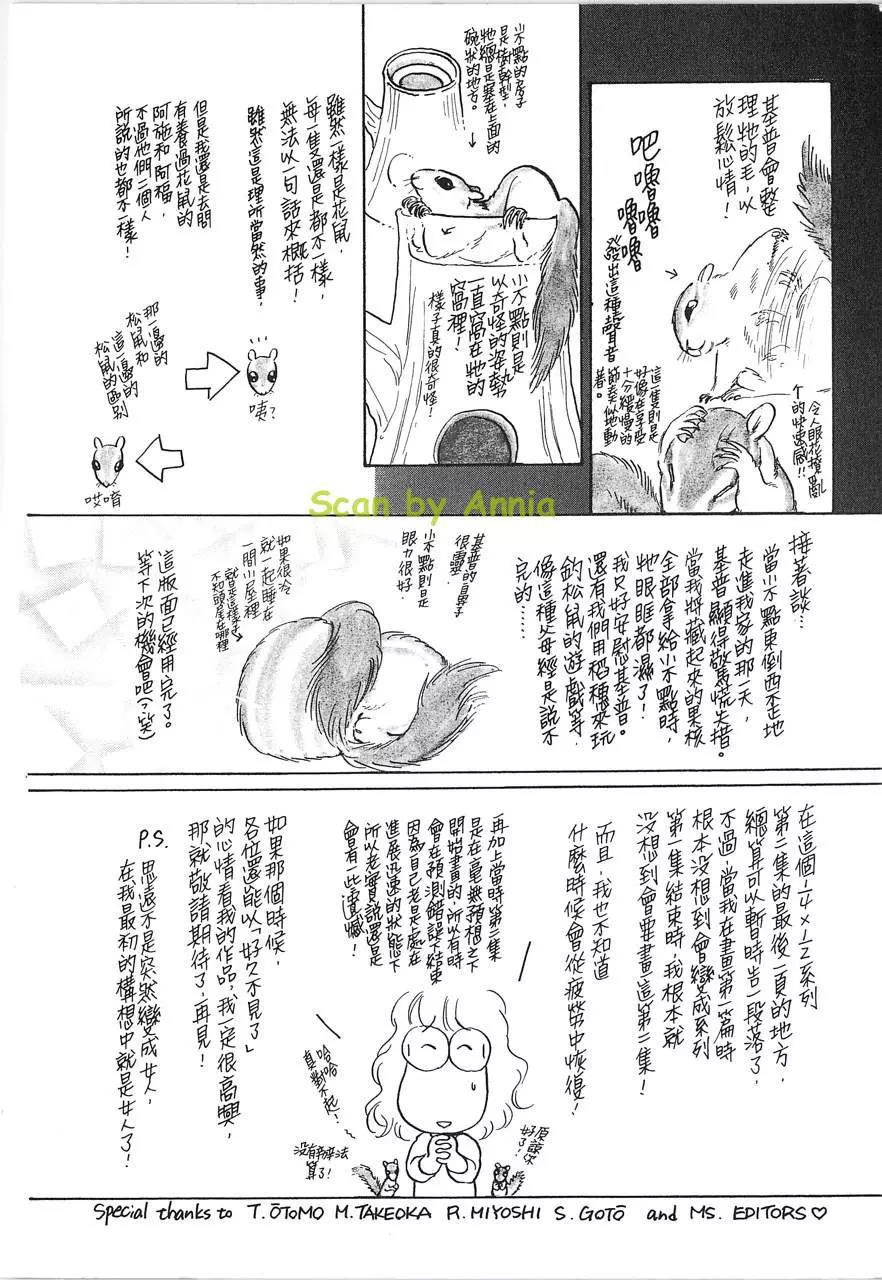 基普會整
理牠的毛，以
放鬆心情！
吧嚕嚕
嚕嚕
發出這種聲音
令人眼花撩亂
的快速感！！
這一隻則是
好像在享受
十分緩慢的
節奏似地動
著。
小不點的房子
是樹幹型，
牠總是塞在上面的
碗狀的地方。
小不點則是
以奇怪的姿勢
一直窩在牠的
窩裡！
樣子真的很奇怪！
雖然一樣是花鼠，
每一隻還是都不一樣，
無法以一句話來概括！
雖然這是理所當然的事，
但是我還是去問
有養過花鼠的
阿施和阿福，
不過他們二個人
所說的也都不一樣！
那一邊的
松鼠和
這一邊的
松鼠的區別
咦？
哎唷
Scan by Annia
接著談…
當小不點東倒西歪地
走進我家的那一天，
基普顯得驚慌失措。
當我將藏起來的果核
全部拿給小不點時，
牠眼眶都濕了！
我只好安慰基普。
還有我們用稻穗來玩
釣松鼠的遊戲等，
像這種父母經是說不
完的……
基普的鼻子
很靈
小不點則是
眼力很好
如果很冷
就一起睡在
一間小屋裡
就是這樣子
不知頭尾在哪裡
這版面已經用完了。
等下次的機會吧（？笑）
在這個1/4×1/2系列
第二集的最後一頁的地方，
總算可以暫時告一段落了，
不過，當我在畫第一篇時
根本沒想到會變成系列
第一集結束時，我根本就
沒想到會要畫這第二集！
而且，我也不知道
什麼時候會從疲勞中恢復！
再加上當時第二集
是在毫無預想之下
開始畫的，所以有時
會在預測錯誤下結束
因為自己老是處在
進展迅速的狀態下
所以老實說還是
會有一些遺憾！
如果那個時候，
各位還能以「好久不見了」
的心情看我的作品，我一定很高興，
那就敬請期待了，再見！
P.S.
思遠不是突然變成女人，
在我最初的構想中就是女人了！
哈哈
真對不起！
原諒
好了！
沒有辦法
算了！
Special thanks to T.ŌTOMO M.TAKEOKA R.MIYOSHI S.GOTŌ and MS. EDITORS♡